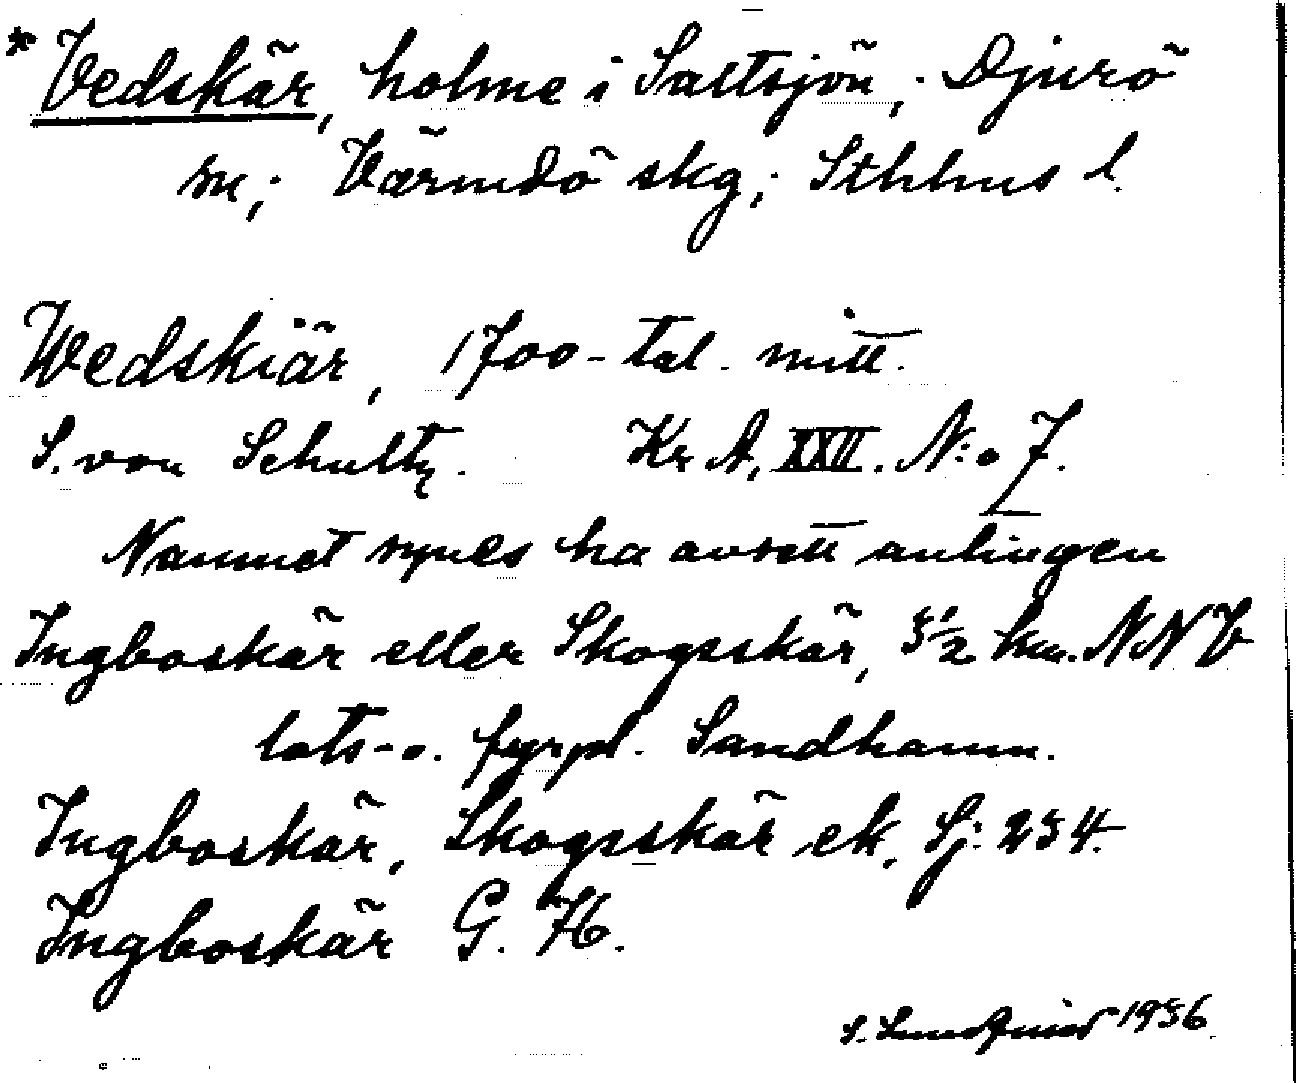 * Vedskär, holme i Saltsjön, Djurö
sn; Värmdö skg; Sthlms l.
Wedskiär, 1700-tal. mitt.
S. von Schultz. Kr A, XXII. N:o 7.
Namnet synes ha avsett antingen
Ingboskär eller Skogsskär, 5 1/2 km. NNV
lots- o. fyrpl. Sandhamn.
Ingboskär, Skogsskär ek. Sj: 254.
Ingboskär G. 76.
S. 1936